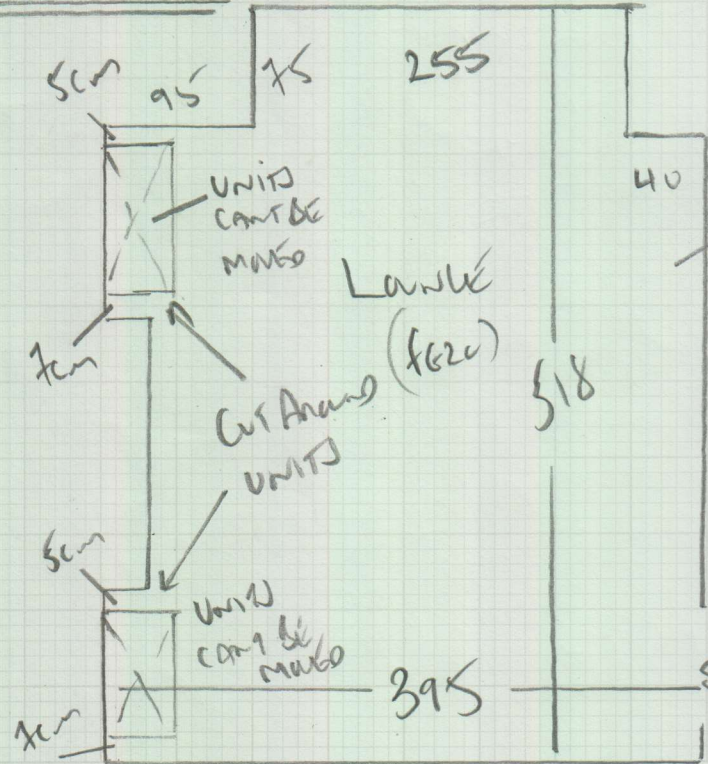 5cm
95
75
255
40
UNITS
CANT BE
MOVED
LOUNGE
7cm
518
CUT AROUND
UNITS
5cm
UNITS
CANT BE
MOVED
395
7cm